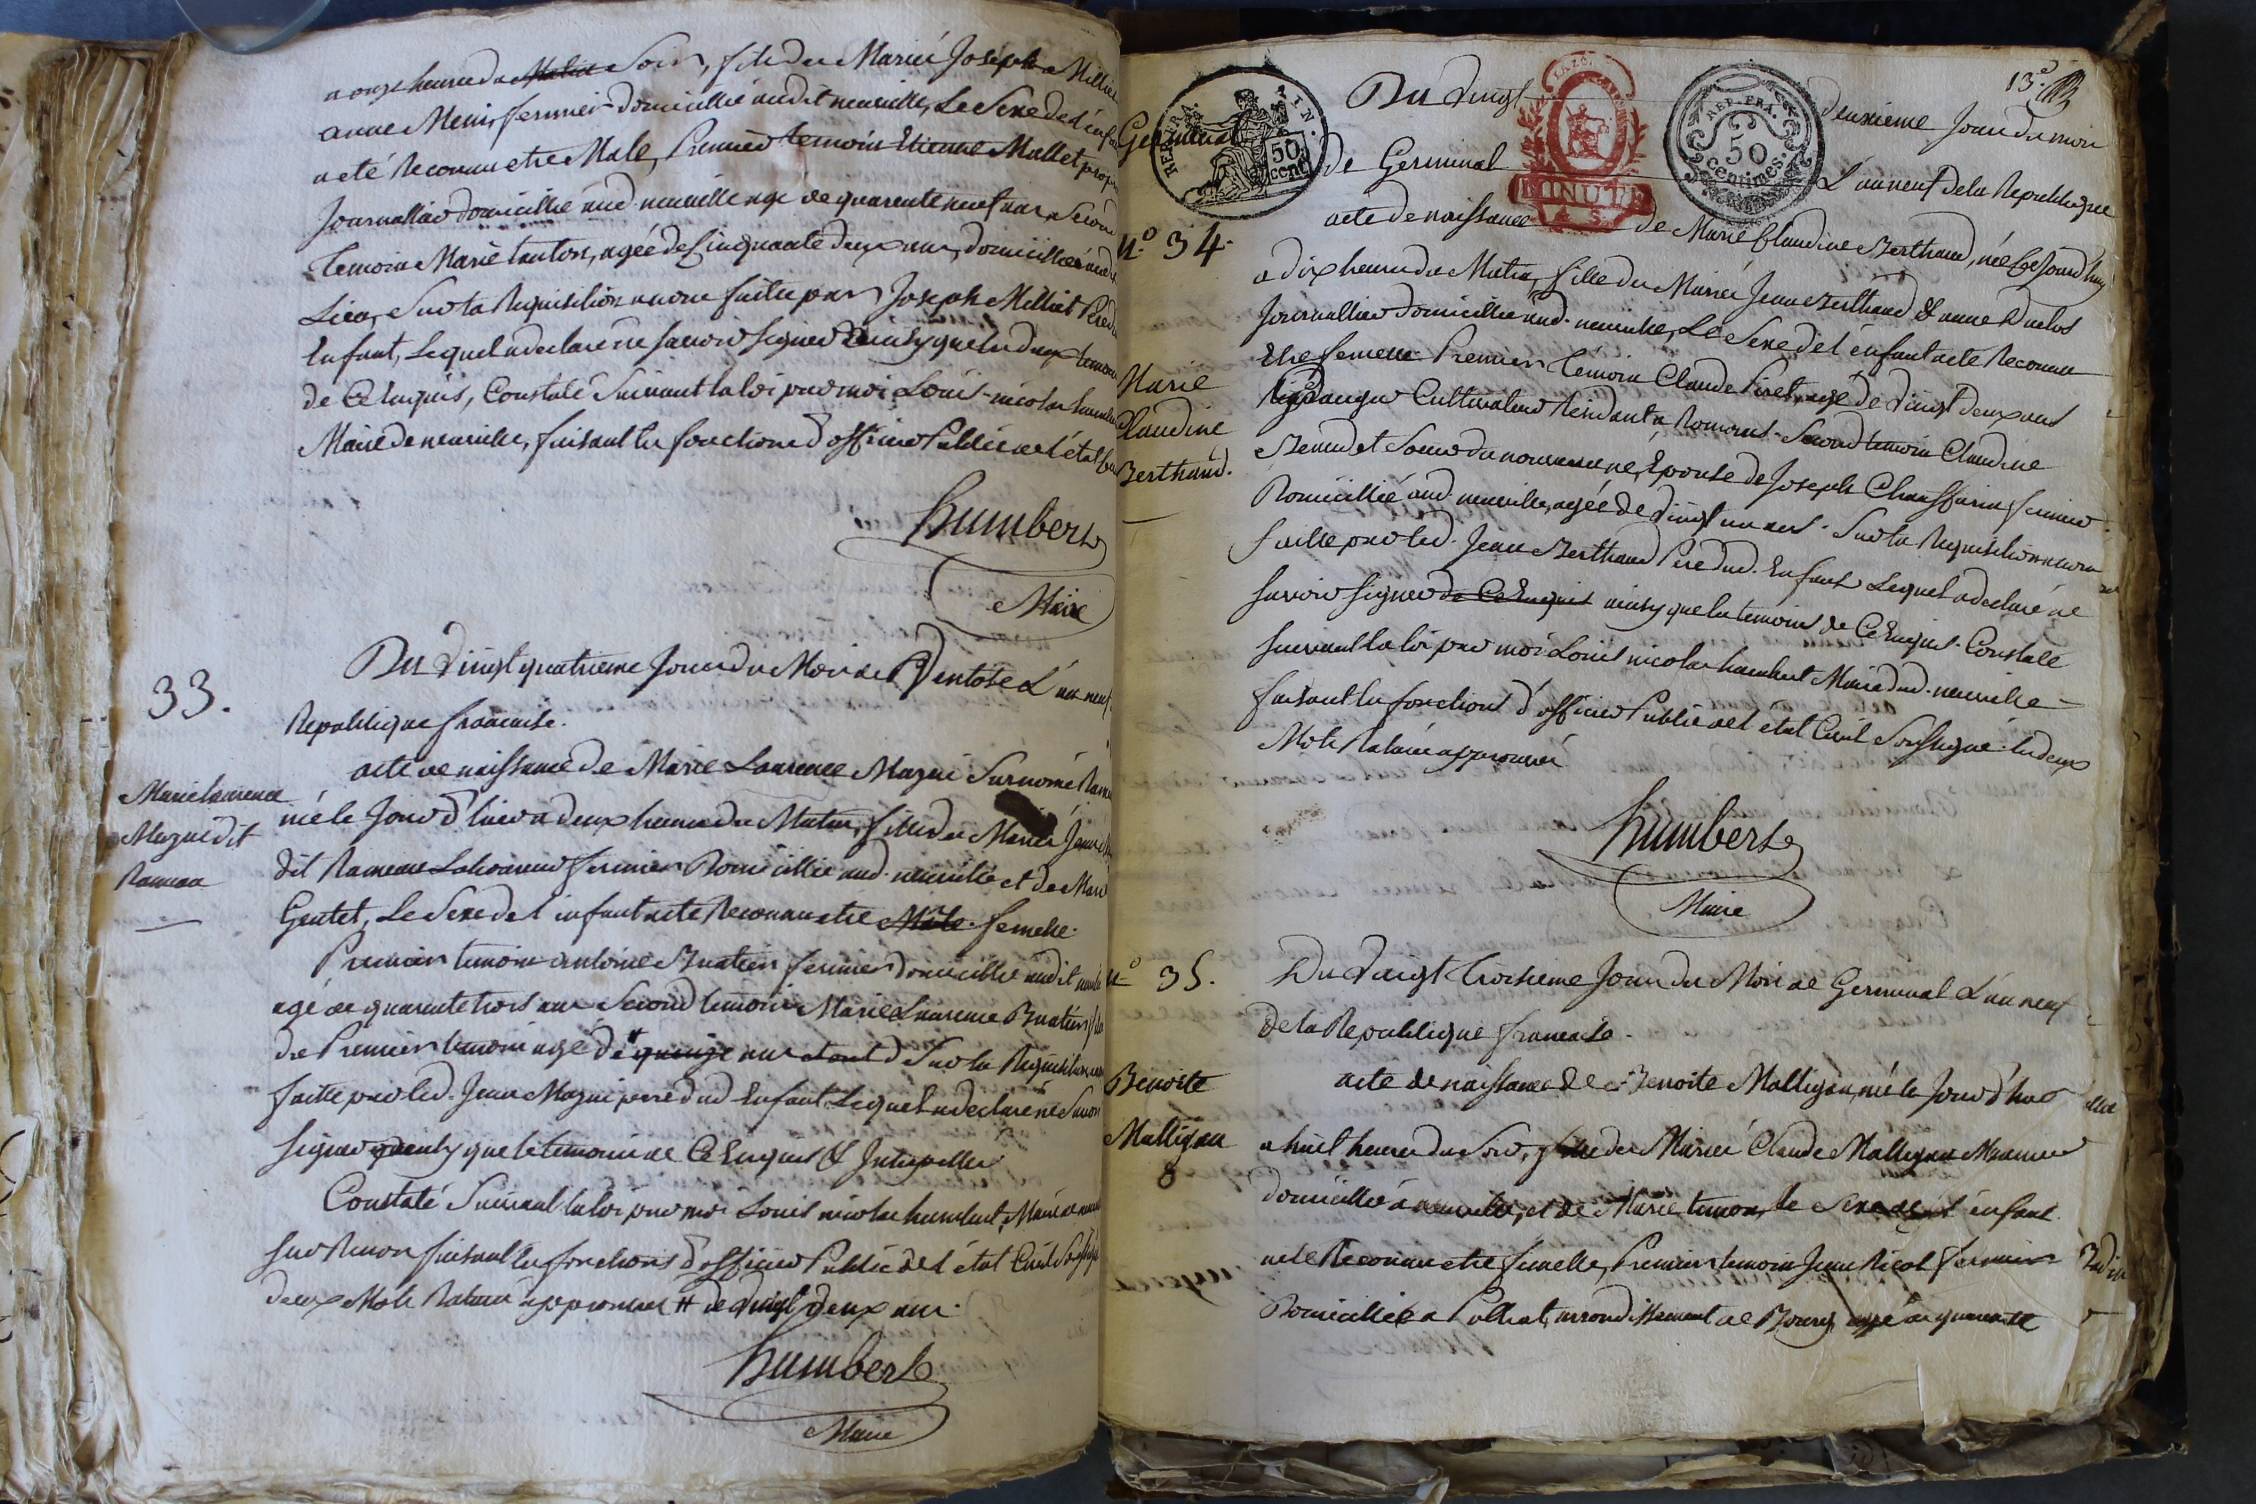 a onze heure du Matin Soir, fils du Mariés Joseph Milliet
anne Menis fermier domicillié audit neuville, Le Sexe de l'enfant
a eté Reconnu etre Male, Premier temoin Etienne Mallet
Journallier domicillié aud. neuville agé de quarente neuf ans Second
Temoin Marie tanton, agée de Cinquante deux ans, domicilliée audit
Lieu, Sur la Requisition a nous faitte par Joseph Milliet Pere du
Enfant, Lequel a declaré ne savoir signer ainsy que les deux temoins
de Ce Enquis, Constaté Suivant la loi par moi Louis-nicolas humbert
Maire de neuville, faisant les fonctions d'officier Public de l'état
humbert
Maire
33.
Du Vingt quatrieme Jour du Mois de Ventose L'an neuf
Republique francaise.
Marie laurence
Mazué dit
Rameau
acte de naissance de Marie Laurence Mazué Surnomé
née le Jour d'hier a deux heures du Matin, fille du Mariés Jean
dit Rameau Laboureur fermier Domicillié aud. neuville et de Marie
Gentet, Le Sexe de l'enfant a eté Reconnu etre Mâle. femelle.
Premier temoin antoine Buatier fermier domicillié audit
agé de quarente trois ans Second temoin Marie Laurence Buatier
du Premier temoin agé de # quinze ans Sur la Requisition
faitte par led. Jean Mazué pere dud Enfant Lequel a declaré ne Savoir
signer ainsy que le temoin de Ce Enquis & Interpellés
Constaté Suivant la loi par moi Louis nicolas humbert, Maire de
sur Renon faisant les fonctions d'officier Public de l'état Civil
deux Mots Raturés approuvés # de Vingt deux ans.
humbert
Maire
13.e
REP. FRA.
50
cent
TIN.
MINUTE
A. S.
REP. FRA.
50
Centimes.
Germinal
Du Vingt deuxieme Jour du mois
de Germinal L'an neuf de la Republique
N.o 34.
acte de naissance de Marie Claudine Berthaud, née Ce Jourd'huy
a dix heures du Matin, fille du Mariés Jean Berthaud & anne Duclos
Journallier domicillié aud. neuville, Le Sexe de l'enfant a eté Reconnu
Marie
Claudine
Berthaud.
Etre femelle. Premier Temoin Claude Piret, agé de Vingt deux ans
Cultivateur Residant a Romans. Second temoin Claudine
Soeur du nouveau né, Epouse de Joseph Chaffurin fermier
Domicillié aud. neuville, agée de Vingt un ans. Sur la Requisition a nous
faitte par led. Jean Berthaud Pere dud. Enfant Lequel a declaré ne
savoir signer de Ce Enquis ainsy que les temoins de Ce Enquis. Constaté
suivant la loi par moi Louis nicolas humbert Maire dud. neuville
faisant les fonctions d'officier Public de l'état Civil Soussigné. les deux
Mots Raturés approuvés
humbert
Maire
N.o 35.
Du Vingt troisieme Jour du Mois de Germinal L'an neuf
de la Republique francaise.
Benoite
Malligau
acte de naissance de Benoite Malligau, née le Jour d'hier
a huit heures du Soir, fille du Mariés Claude Malligau Manoeuvre
domicillié à neuville, et de Marie temon, le Sexe de l'enfant
a eté Reconnu etre femelle, Premier temoin Jean Ricol fermier
Domicillié a Polliat, arrondissement de Bourg, agé de quarente